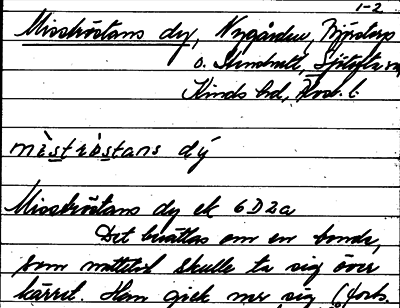 1-2
Misströstans dy, Nygården, Bjöstorp
o. Stensholt, Sjötofta sn,
Kinds hd,
mìströ̀stans dý
Misströstans dy ek 6D2a
Det berättas om en bonde,
som nattetid skulle ta sig över
kärret. Han gick ner sig (forts.